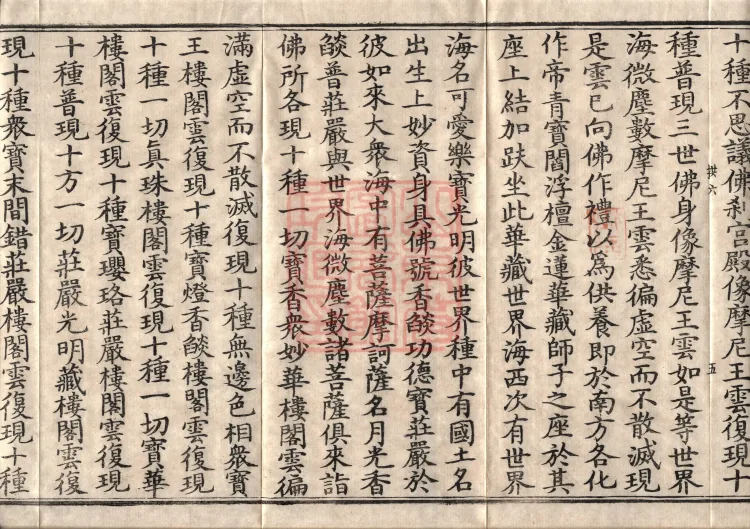 十種不思議佛刹宮殿像摩尼王雲復現十
種普現三世佛身像摩尼王雲如是等世界
海微塵數摩尼王雲悉徧虛空而不散滅現
是雲已向佛作禮以爲供養即於南方各化
作帝青寶閻浮檀金蓮華藏師子之座於其
座上結加趺坐此華藏世界海西次有世界
海名可愛樂寶光明彼世界種中有國土名
出生上妙資身具佛號香燄功德寶莊嚴於
彼如來大衆海中有菩薩摩訶薩名月光香
燄普莊嚴與世界海微塵數諸菩薩俱來詣
佛所各現十種一切寶香衆妙華樓閣雲徧
滿虛空而不散滅復現十種無邊色相衆寶
王樓閣雲復現十種寶燈香燄樓閣雲復現
十種一切眞珠樓閣雲復現十種一切寶華
樓閣雲復現十種寶瓔珞莊嚴樓閣雲復現
十種普現十方一切莊嚴光明藏樓閣雲復
現十種衆寶末間錯莊嚴樓閣雲復現十種
六
五